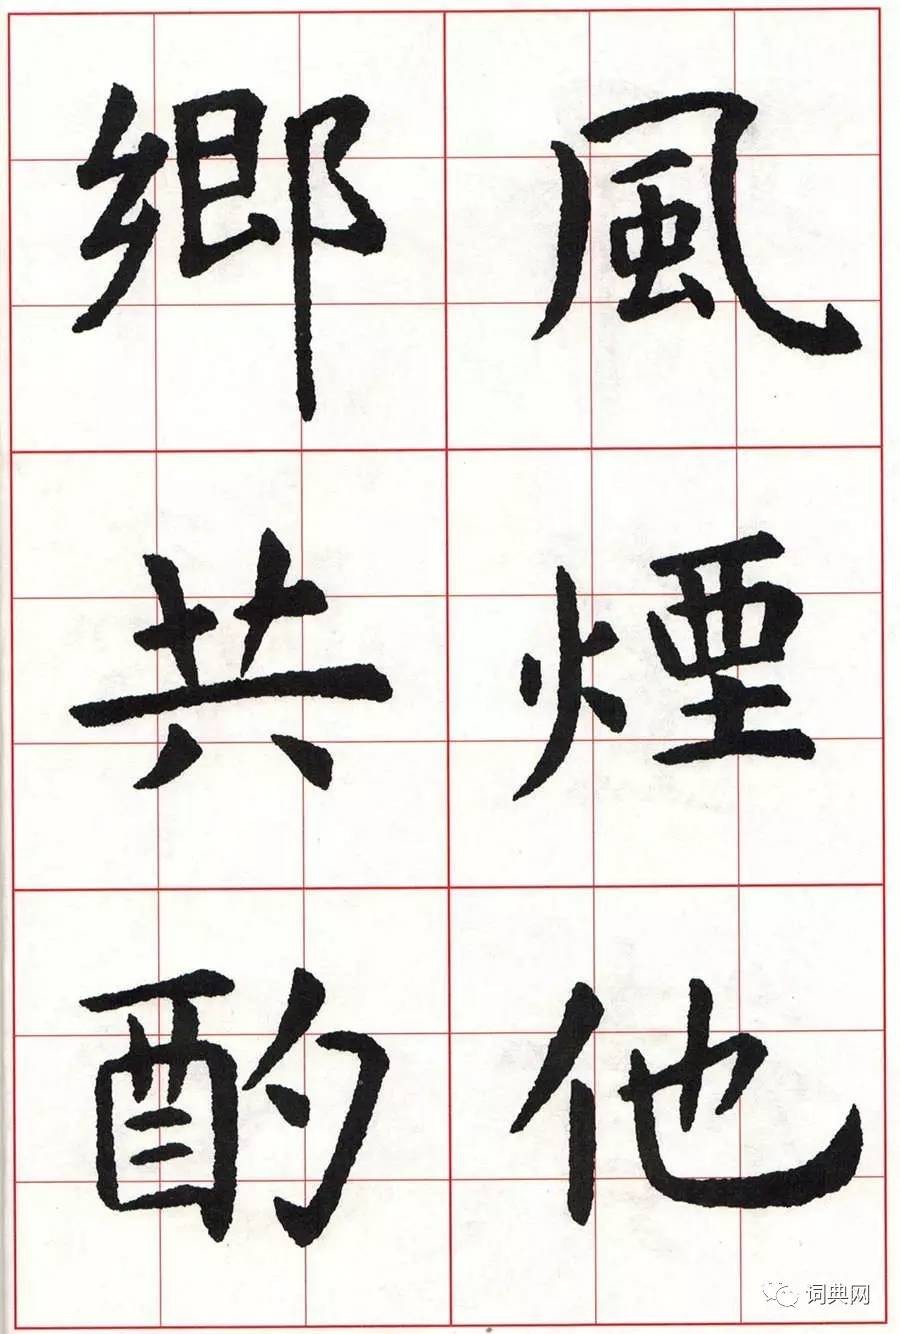 風煙他
鄉共酌
词典网